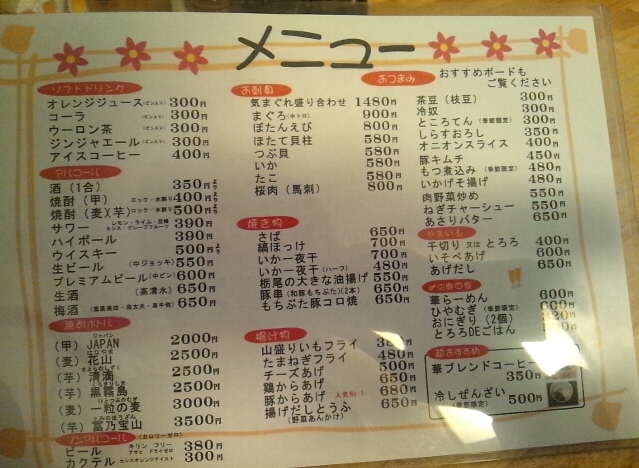 メニュー
ソフトドリンク
オレンジジュース(ビン入り) 300円
コーラ (ビン入り) 300円
ウーロン茶 (ビン入り) 300円
ジンジャエール(ビン入り) 300円
アイスコーヒー 400円
アルコール
酒(1合) 350円より
焼酎(甲) ロック・水割り 400円より
焼酎(麦)(芋) ロック・水割り 500円より
サワー レモン・ライム・巨峰 カシス・グレープフルーツ 390円
ハイボール 390円
ウイスキー 500円より
生ビール (中ジョッキ) 550円
プレミアムビール(中ビン) 600円
生酒 (高清水) 650円
梅酒 650円
焼酎ボトル
(甲) JAPAN ジャパン 2000円
(麦) 花山 はなやま 2500円
(芋) 清満 2500円
(芋) 黒霧島 くろきりしま 2500円
(麦) 一粒の麦 ひとつぶのむぎ 3000円
(芋) 冨乃宝山 とみのほうざん 3500円
ノンアルコール (カロリーゼロ)
ビール キリン フリー アサヒ ドライゼロ 380円
カクテル カシスオレンジテイスト 300円
お刺身
気まぐれ盛り合わせ 1480円
まぐろ(中トロ) 900円
ぼたんえび 800円
ほたて貝柱 580円
つぶ貝 580円
いか 550円
たこ 580円
桜肉(馬刺) 800円
焼き物
さば 650円
縞ほっけ 700円
いか一夜干 700円
いか一夜干(ハーフ) 480円
栃尾の大きな油揚げ 550円
豚串(和豚もちぶた)(2本) 650円
もちぶた豚コロ焼 650円
揚げ物
山盛りいもフライ
たまねぎフライ 480円
チーズあげ 500円
鶏からあげ 680円
豚からあげ 人気No.1 680円
揚げだしとうふ 650円
(野菜あんかけ)
おつまみ
おすすめボードも
ご覧ください
茶豆(枝豆) 300円
冷奴 300円
ところてん(季節限定) 300円
しらすおろし 350円
オニオンスライス 400円
豚キムチ 450円
もつ煮込み (季節限定) 480円
いかげそ揚げ 480円
肉野菜炒め 550円
ねぎチャーシュー 550円
あさりバター 650円
やまいも
千切り 又は とろろ 400円
いそべあげ 600円
あげだし 650円
〆の逸品
華らーめん 600円
ひやむぎ(季節限定) 600円
おにぎり(2個)
とろろDEごはん
超おすすめ
華ブレンドコーヒー
350円
冷しぜんざい
(季節限定) 500円